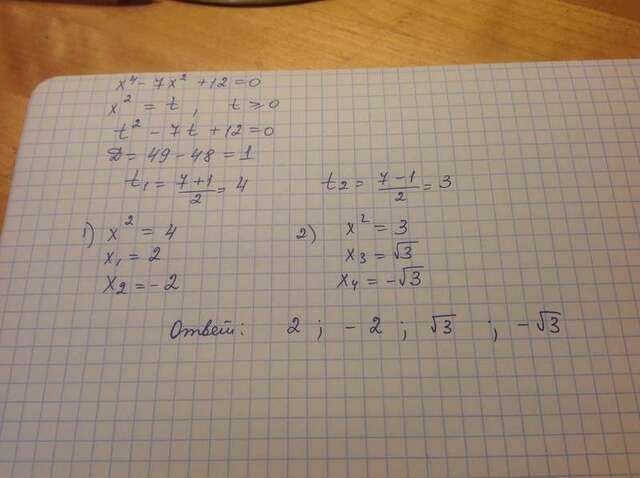 x⁴ - 7x² + 12 = 0
x² = t, t ≥ 0
t² - 7t + 12 = 0
D = 49 - 48 = 1
t₁ = (7+1)/2 = 4 t₂ = (7-1)/2 = 3
1) x² = 4 2) x² = 3
x₁ = 2 x₃ = √3
x₂ = -2 x₄ = -√3
Ответ: 2 ; -2 ; √3 ; -√3